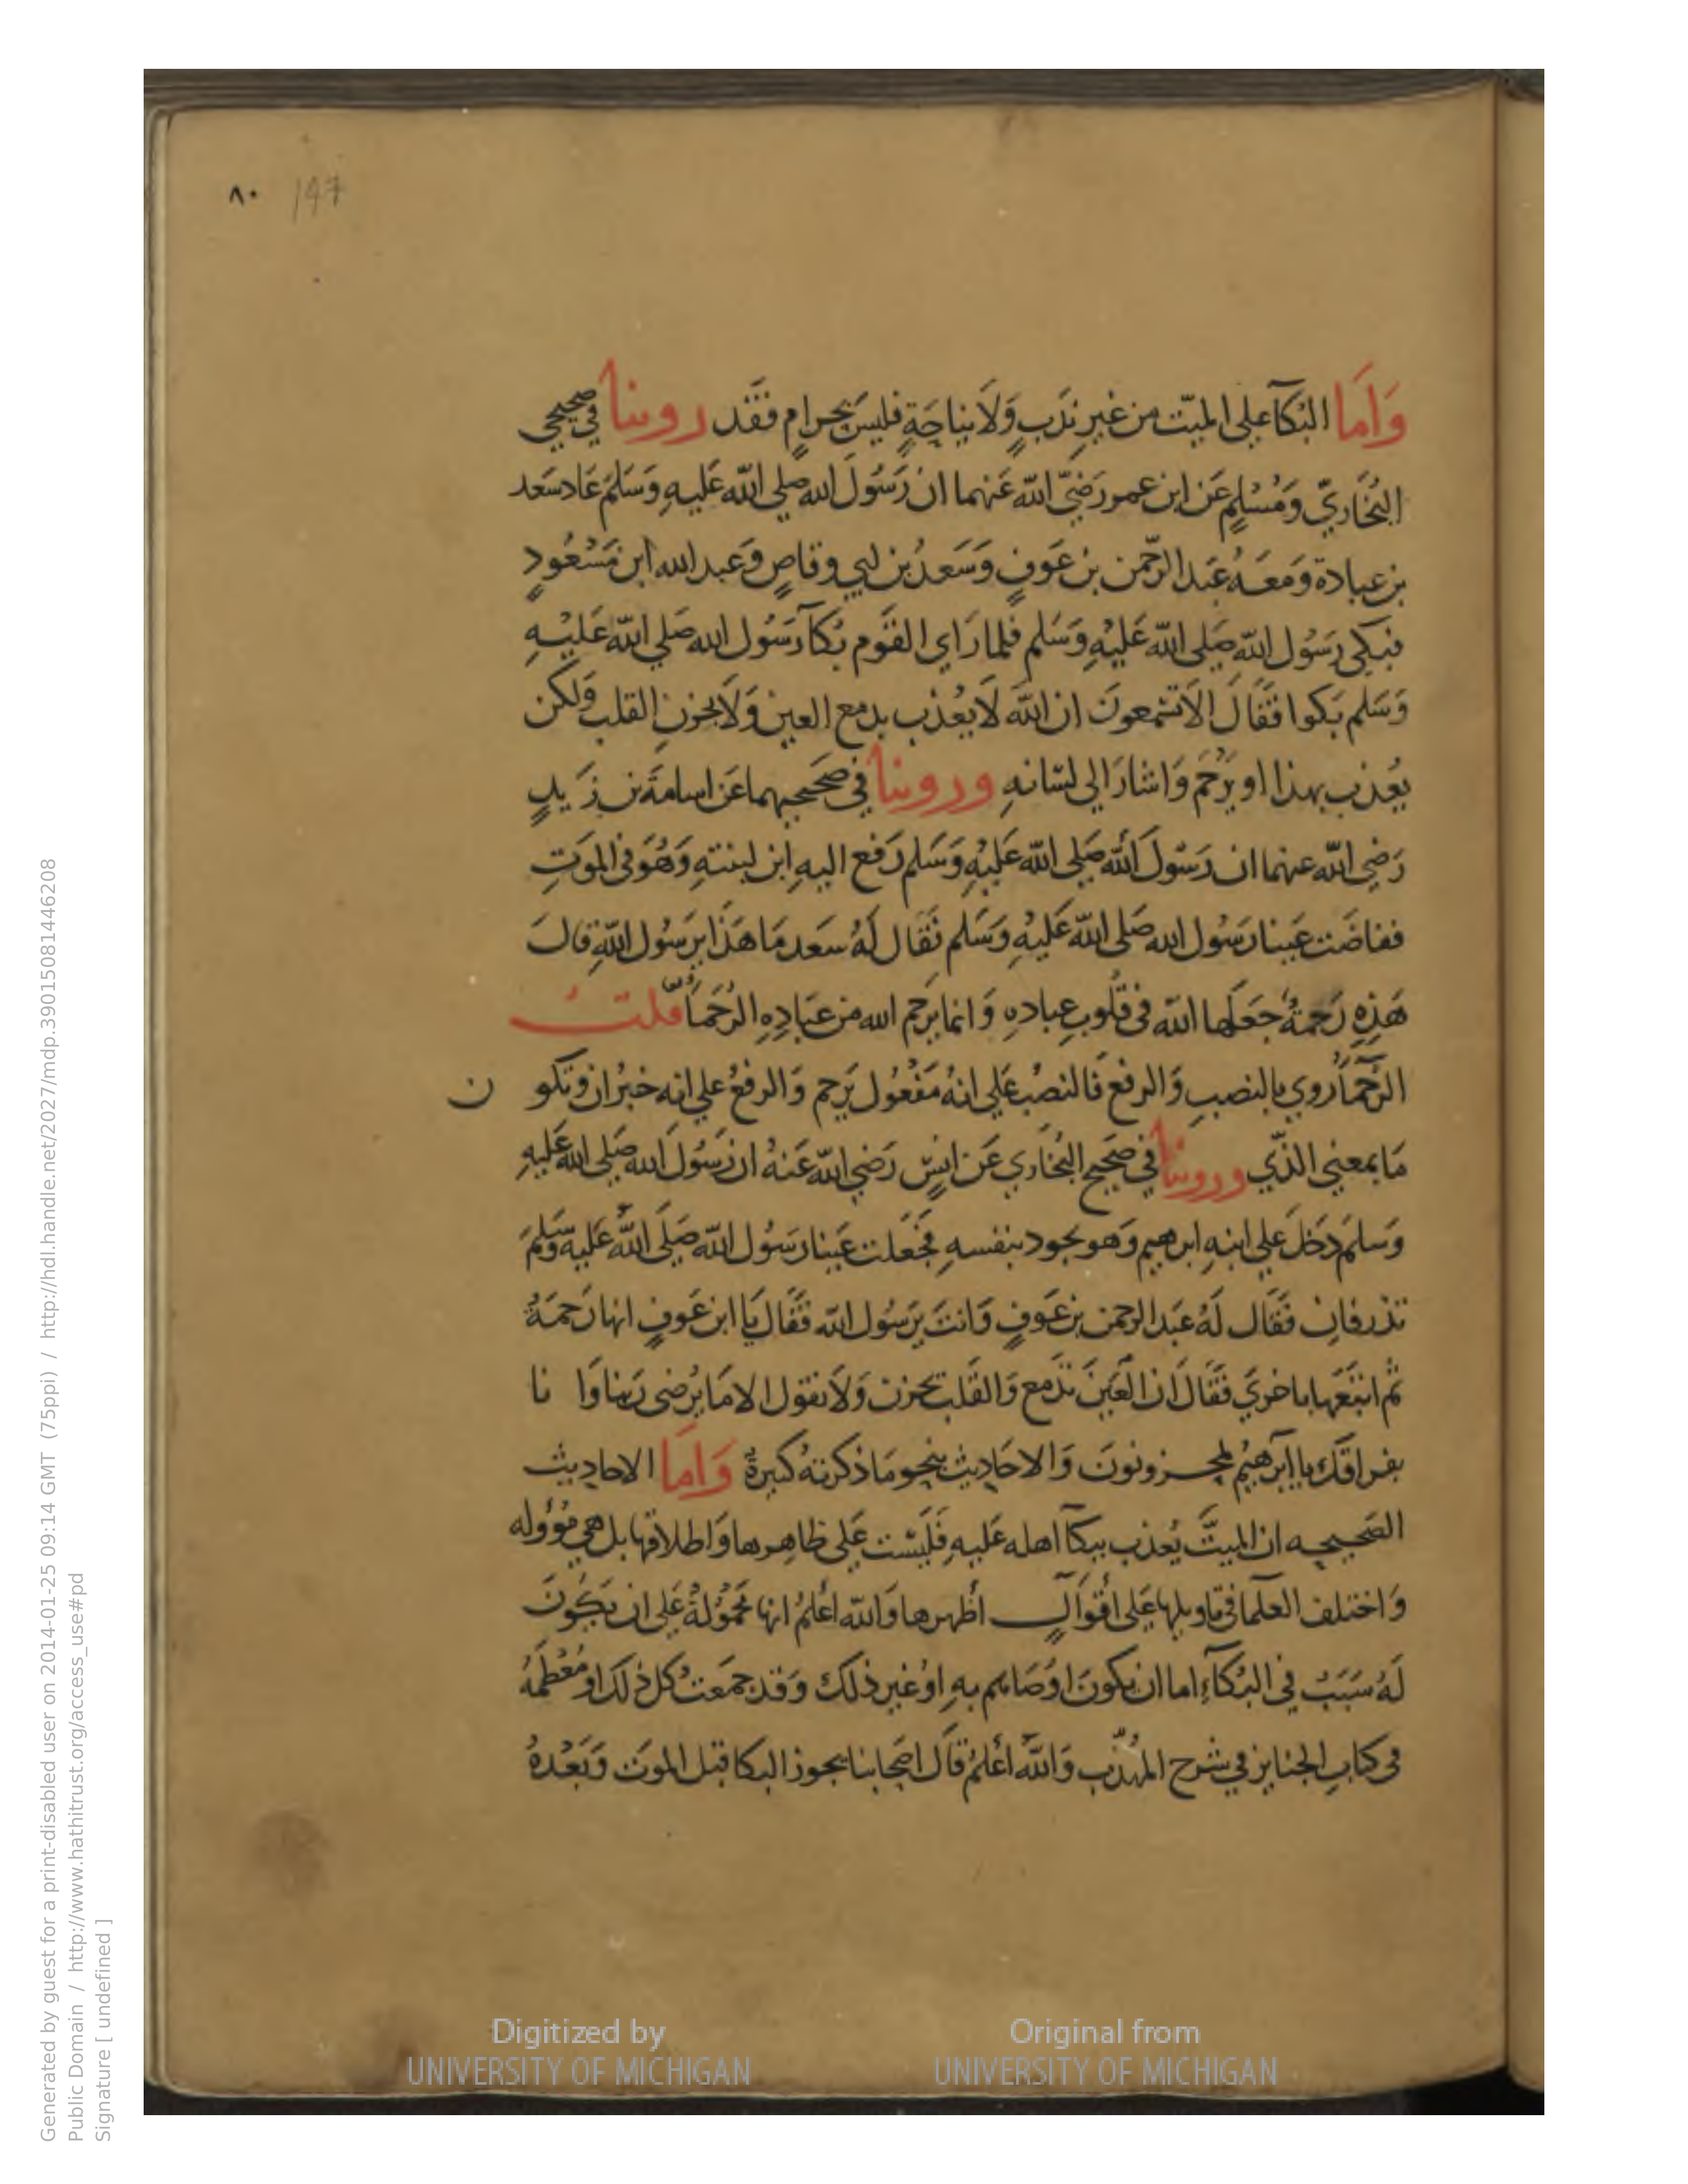 ٨٠ 147
وَاَما البُكآ على الميّت من غير نَدَبٍ وَلَا نياحَةٍ فليسَ بحرامٍ فقَد روينا في صحيحي
البُخَاريّ وَمُسْلِمٍ عَن ابن عمر رَضيَ الله عَنهما ان رَسُولَ الله صلى الله عَليهِ وَسَلمَ عَاد سَعد
بن عبادة وَمعَهُ عَبد الرّحمن بن عَوفٍ وَسَعدُ بن ابي وقاصٍ وَعبد الله ابن مَسْعُودٍ
فبكى رَسُول الله صَلى الله عَليْهِ وَسَلم فلما رَاي القَوم بُكآ رَسُول الله صَلي الله عَليْهِ
وَسَلم بَكوا فقَالَ الَا تسْمعونَ ان الله لَا يعُذب بدمع العين وَلَا بحُزنِ القلب وَلكن
يعُذب بهذا او يَرْحَم وَاشارَ الي لسَانهِ وروينا في صَحيحيهما عَن اسامةَ بن زَيدٍ
رَضِي الله عنهما ان رَسُولَ الله صَلى الله عَليْهِ وَسَلم رَفع اليهِ ابن لبنتهِ وَهُوَ في الموَتِ
ففاضَت عَينا رَسُول الله صَلى الله عَليْهِ وَسَلم فقَال لَهُ سَعد مَا هَذا يرَسُول اللهِ قال
هَذِهِ رَحمةٌ جَعَلها الله في قلُوبِ عِبادهِ وَانما يَرحم الله من عبَادِهِ الرُحَمآ قلت
الرحمآ رُوي بالنصبِ وَالرفع فَالنصبُ عَلي انهُ مَفْعُول يَرحم وَالرفعُ علي انه خبرُ ان وتكو ن
مَا بمعنى الذّي وروينا في صَحيح البُخَاري عَن انسٍ رَضي الله عَنهُ ان رَسُولَ الله صَلي الله عَليهِ
وَسَلمَ دَخَلَ عَلي ابنهِ ابرهيم وَهو يجود بنفسهِ فجَعلت عَينا رَسُول الله صَلَى اللهُ عَليهِ وسَلمَ
تذرفانِ فقَال لَهُ عَبد الرحمن بن عَوفٍ وَانتَ يرَسُول الله فقَالَ يَا ابن عَوفٍ انها رَحمَةٌ
ثم اتبَعَها باخريَ فقَالَ ان العَينَ تدَمع وَالقَلب يحزن وَلَا نقول الا مَا يُرضى رَبنا وَا نا
بفراقكَ ياابرَهيْمُ لمحزونونَ وَالاحَاديث بنحو مَا ذكرتهُ كَبيرةٌ وَامَا الاحاديث
الصَحيحه ان الميتَّ يُعذب ببكآ اهله عَليهِ فَليْسَت عَلى ظاهِرها وَاطلاقها بل هي مؤوله
وَاختلف العلما في تاويلها عَلى اَقْوَالٍ اَظهرها وَالله اَعْلمُ انها مَحمُولةٌ عَلى ان يَكُونَ
لَهُ سَبَبٌ في البُكآءِ اما ان يكونَ اوُصَاهم بهِ اوْ غير ذلك وَقد جمعَتُ كل ذلكَ او مُعْظمَهُ
في كتابِ الجنايز في شرح المُهذّب وَاللهُ اَعْلمُ قَالَ اصَحابنا يجوز البكا قبل الموَت وَبَعْدهُ
Digitized by
UNIVERSITY OF MICHIGAN
Original from
UNIVERSITY OF MICHIGAN
Generated by guest for a print-disabled user on 2014-01-25 09:14 GMT (75ppi) / http://hdl.handle.net/2027/mdp.39015081446208
Public Domain / http://www.hathitrust.org/access_use#pd
Signature [ undefined ]